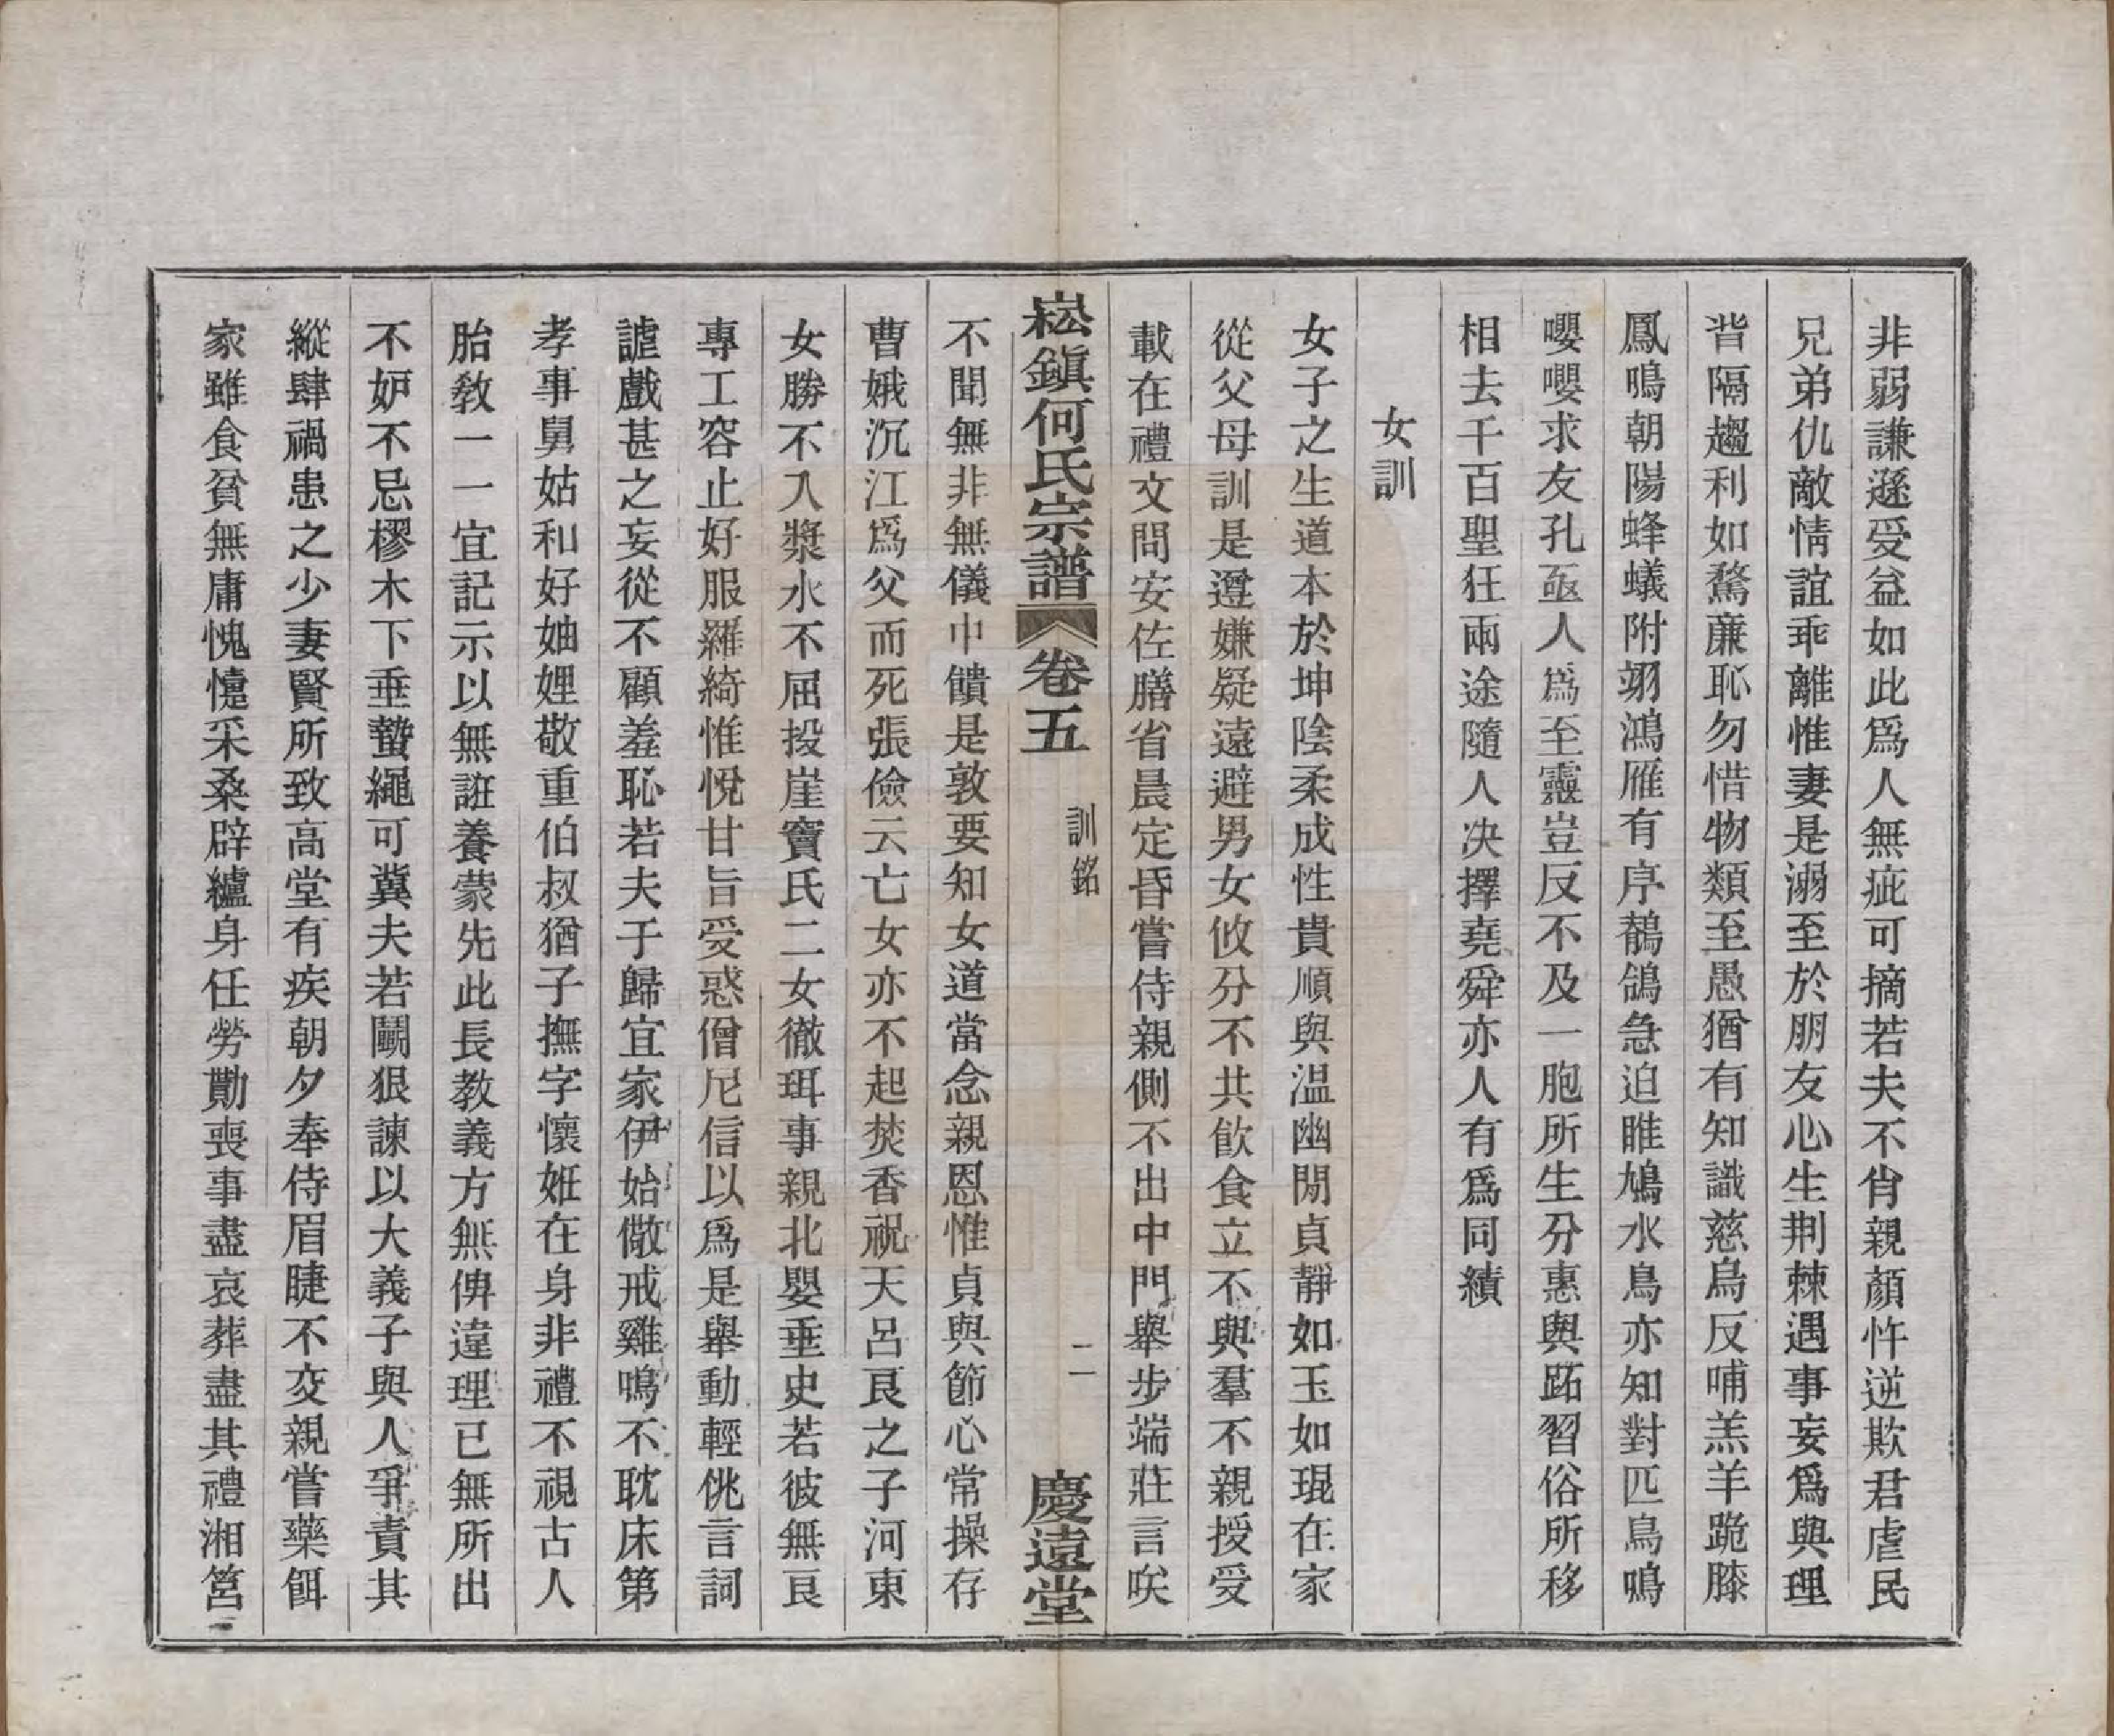 非弱謙遜受益如此爲人無疵可摘若夫不肖親顏忤逆欺君虐民
兄弟仇敵情誼乖離惟妻是溺至於朋友心生荆棘遇事妄爲與理
背隔趨利如鶩廉恥勿惜物類至愚猶有知識慈烏反哺羔羊跪膝
鳳鳴朝陽蜂蟻附翊鴻雁有序鶺鴒急迫雎鳩水鳥亦知對匹鳥鳴
嚶嚶求友孔亟人爲至靈豈反不及一胞所生分惠與跖習俗所移
相去千百聖狂兩途隨人决擇堯舜亦人有爲同績
女訓
女子之生道本於坤陰柔成性貴順與温幽閒貞靜如玉如琨在家
從父母訓是遵嫌疑遠避男女攸分不共飮食立不與羣不親授受
載在禮文問安佐膳省晨定昏嘗侍親側不出中門舉步端莊言唉
崧鎭何氏宗譜 卷五 訓銘 二 慶遠堂
不聞無非無儀中饋是敦要知女道當念親恩惟貞與節心常操存
曹娥沉江爲父而死張儉云亡女亦不起焚香祝天呂良之子河東
女勝不入漿水不屈投崖竇氏二女徹珥事親北嬰垂史若彼無良
專工容止好服羅綺惟悅甘旨受惑僧尼信以爲是舉動輕佻言詞
謔戲甚之妄從不顧羞恥若夫于歸宜家伊始儆戒雞鳴不耽床第
孝事舅姑和好妯娌敬重伯叔猶子撫字懷姙在身非禮不視古人
胎教一一宜記示以無誑養蒙先此長教義方無俾違理已無所出
不妒不忌樛木下垂蟄繩可冀夫若鬭狠諫以大義子與人爭責其
縱肆禍患之少妻賢所致高堂有疾朝夕奉侍眉睫不交親嘗藥餌
家雖食貧無庸愧懥采桑辟纑身任勞勩喪事盡哀葬盡其禮湘筥